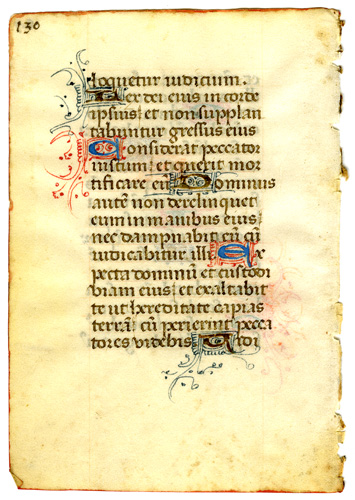 130
loquetur iudicium.
Lex dei eius in corde
ipsius: et non supplan
tabuntur gressus eius
Considerat peccator
iustum: et querit mor
tificare eū Dominus
autē non derelinquet
eum in manibus eius:
nec dampnabit eū cū
iudicabitur illi Ex
pecta dominū et custodi
viam eius: et exaltabit
te ut hereditate capias
terrā: cū perierint pecca
tores videbis Uidi